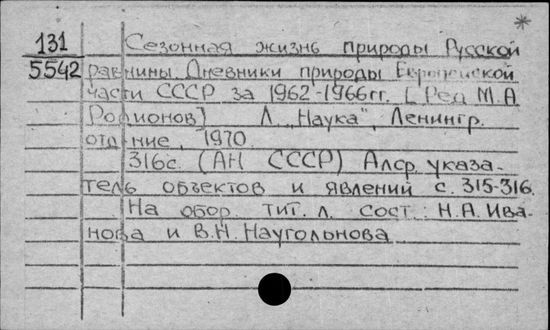 131 Сезонная жизнь природы Русской
5542 равнины. Дневники природы Европейской
части СССР за 1962-1966гг. [Ред М.А
Родионов] Л. „Наука", Ленингр.
отд-ние, 1970.
316с. (АН СССР) Алф. указа-
тель объектов и явлений с. 315-316.
На обор. тит. л. сост: Н.А. Ива-
нова и В.Н. Наугольнова